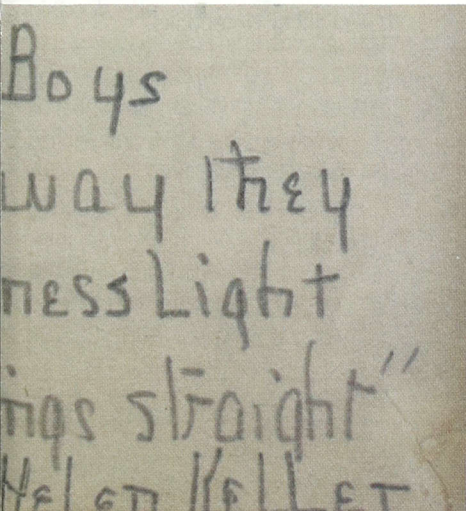 Boys
way they
ness Light
ngs straight"
Helen Keller